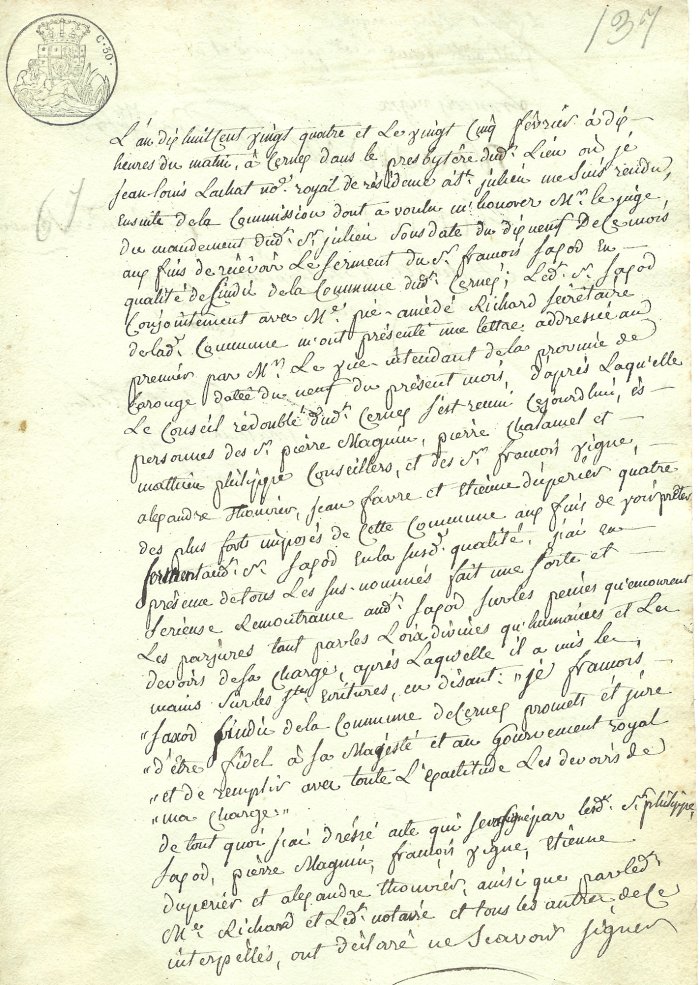 C. 50.
137
67
L'an dix huit Cent vingt quatre et Le vingt Cinq février à dix
heures du matin, à Cernex dans le presbytère dudt. Lieu où je
Jean-Louis Lachat nore. royal de résidence à St. julien me suis rendu,
Ensuite de la Commission dont a voulu m'honorer Mr. le juge
du mandement dudt. St. julien sous date du dix neuf De ce mois
aux fins de recevoir Le serment du Sr. françois Saxod en
qualité de Sindic de la Commune dudt. Cernex; Ledt. Sr. Saxod
Conjointement avec Me. pre-amédé Richard Secrétaire
de ladte. Commune m'ont présenté une lettre addressée au
premier par Mr. Le vice-intendant de la province de
Carouge datée du neuf du présent mois, d'après Laquelle
Le Conseil redoublé dudt. Cernex s'est réuni Cejourd'hui, ès
personnes des Srs. pierre Magnin, pierre Chatamel et
mathieu philippe Conseillers, et des Srs. françois vigne,
alexandre Thouvier, Jean favre et Etienne duperier quatre
des plus forts imposés de Cette Commune aux fins de voir prêter
serment audt. Sr. Saxod En la susdte. qualité, j'ai en
présence de tous Les sus-nommés fait une forte et
Serieuse Remontrance audt. Saxod sur les peines qu'encourent
Les parjures tant par les Loix divines qu'humaines et Les
devoirs de sa Charge, après Laquelle il a mis les
mains sur les Stes. Ecritures, en disant: "je françois
"Saxod Sindic de la Commune de Cernex promets et jure
"d'être fidel à sa Majesté et au Gouvernement royal
"et de remplir avec toute L'exactitude Les devoirs de
"ma Charge".
de tout quoi j'ai dressé acte qui sera signé par lesdts. Srs. philippe,
Saxod, pierre Magnin, françois vigne, Etienne
duperier et alexandre Thouvier, ainsi que par ledt.
Me. Richard et Ledt. notaire et tous les autres de Ce
interpellés, ont déclaré ne Scavoir signer